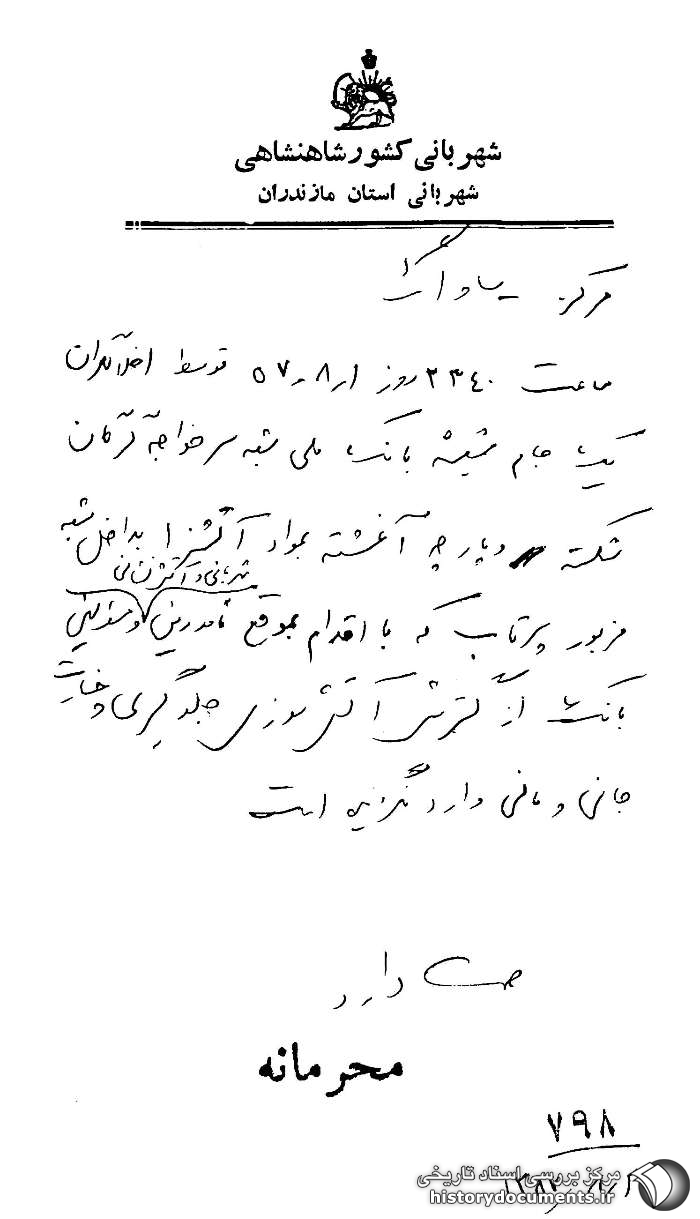 شهربانی کشور شاهنشاهی
شهربانی استان مازندران
مرکز ساواک
ساعت ۲۳۴۰ روز توسط اخلالگران
یک جام شیشه بانک ملی شعبه سر خواجه گرگان
شکسته و پارچه آغشته بمواد آتشزا بداخل شعبه
مزبور پرتاب که با اقدام بموقع مامورین شهربانی و آتش نشانی و مسئولین
بانک از گسترش آتش سوزی جلوگیری و خسارت
جانی و مالی وارد نگردیده است
دارد
محرمانه
۷۹۸
مرکز بررسی اسناد تاریخی
historydocuments.ir